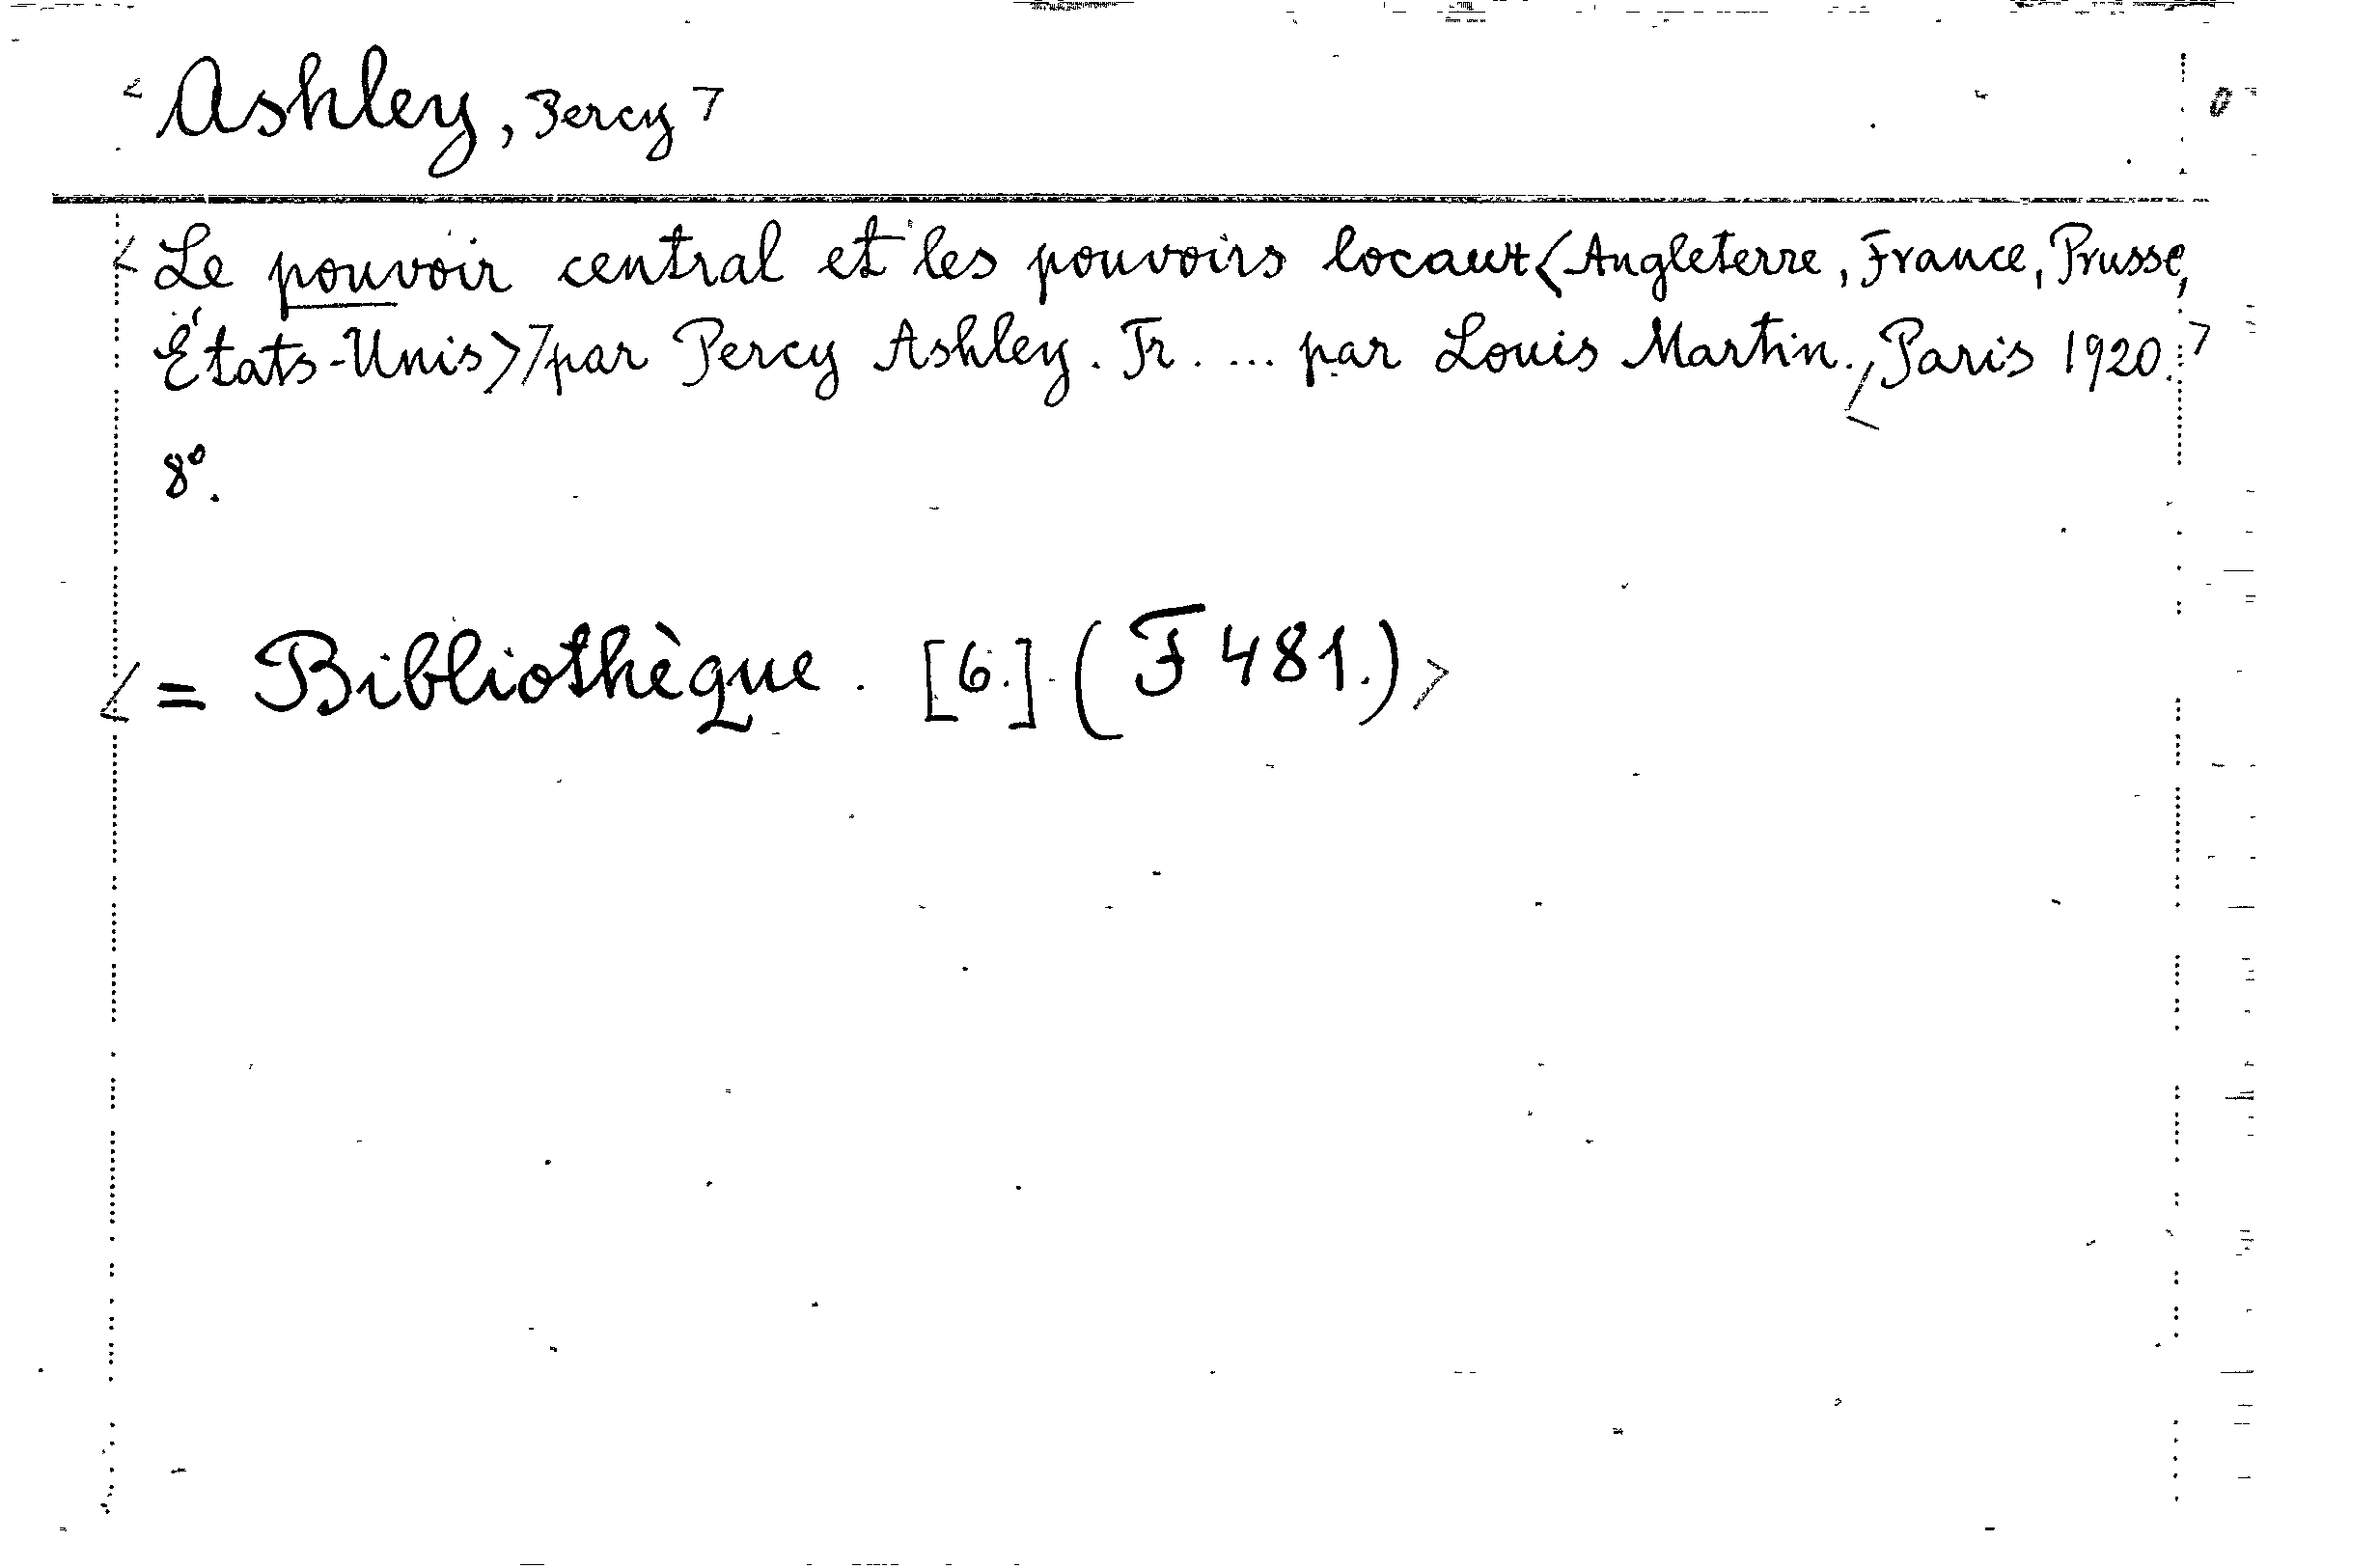 < Ashley, Percy >
< Le pouvoir central et les pouvoirs locaux <Angleterre, France, Prusse,
États-Unis>> par Percy Ashley. Tr. ... par Louis Martin. < Paris 1920. >
8º.
< = Bibliothèque. [6.] (F 481.) >